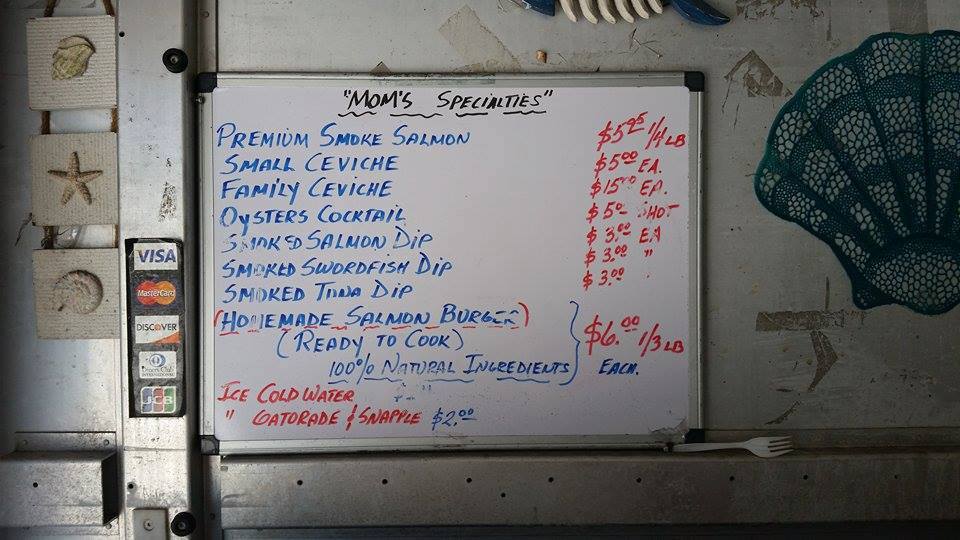 "MOM'S SPECIALTIES"
PREMIUM SMOKE SALMON $5.95 1/4 LB
SMALL CEVICHE $5.00 EA.
FAMILY CEVICHE $15.00 EA.
OYSTERS COCKTAIL $5.00 SHOT
SMOKED SALMON DIP $3.00 EA
SMOKED SWORDFISH DIP $3.00 "
SMOKED TUNA DIP $3.00 "
(HOMEMADE SALMON BURGER)
(READY TO COOK) $6.00 1/3 LB
100% NATURAL INGREDIENTS EACH.
ICE COLD WATER
" GATORADE & SNAPPLE $2.00
VISA
MasterCard
DISCOVER
Diners Club
INTERNATIONAL
JCB